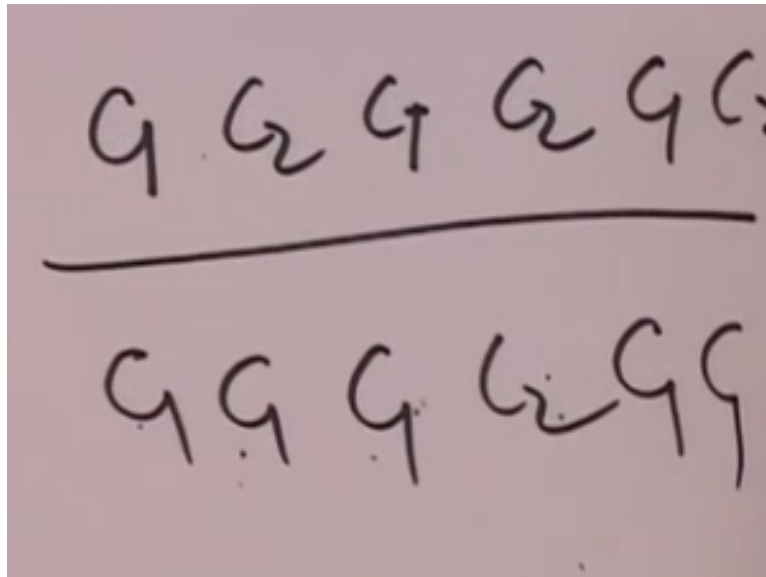 C₁ C₂ C₁ C₂ C₁ C₂
C₁ C₁ C₁ C₂ C₁ C₁